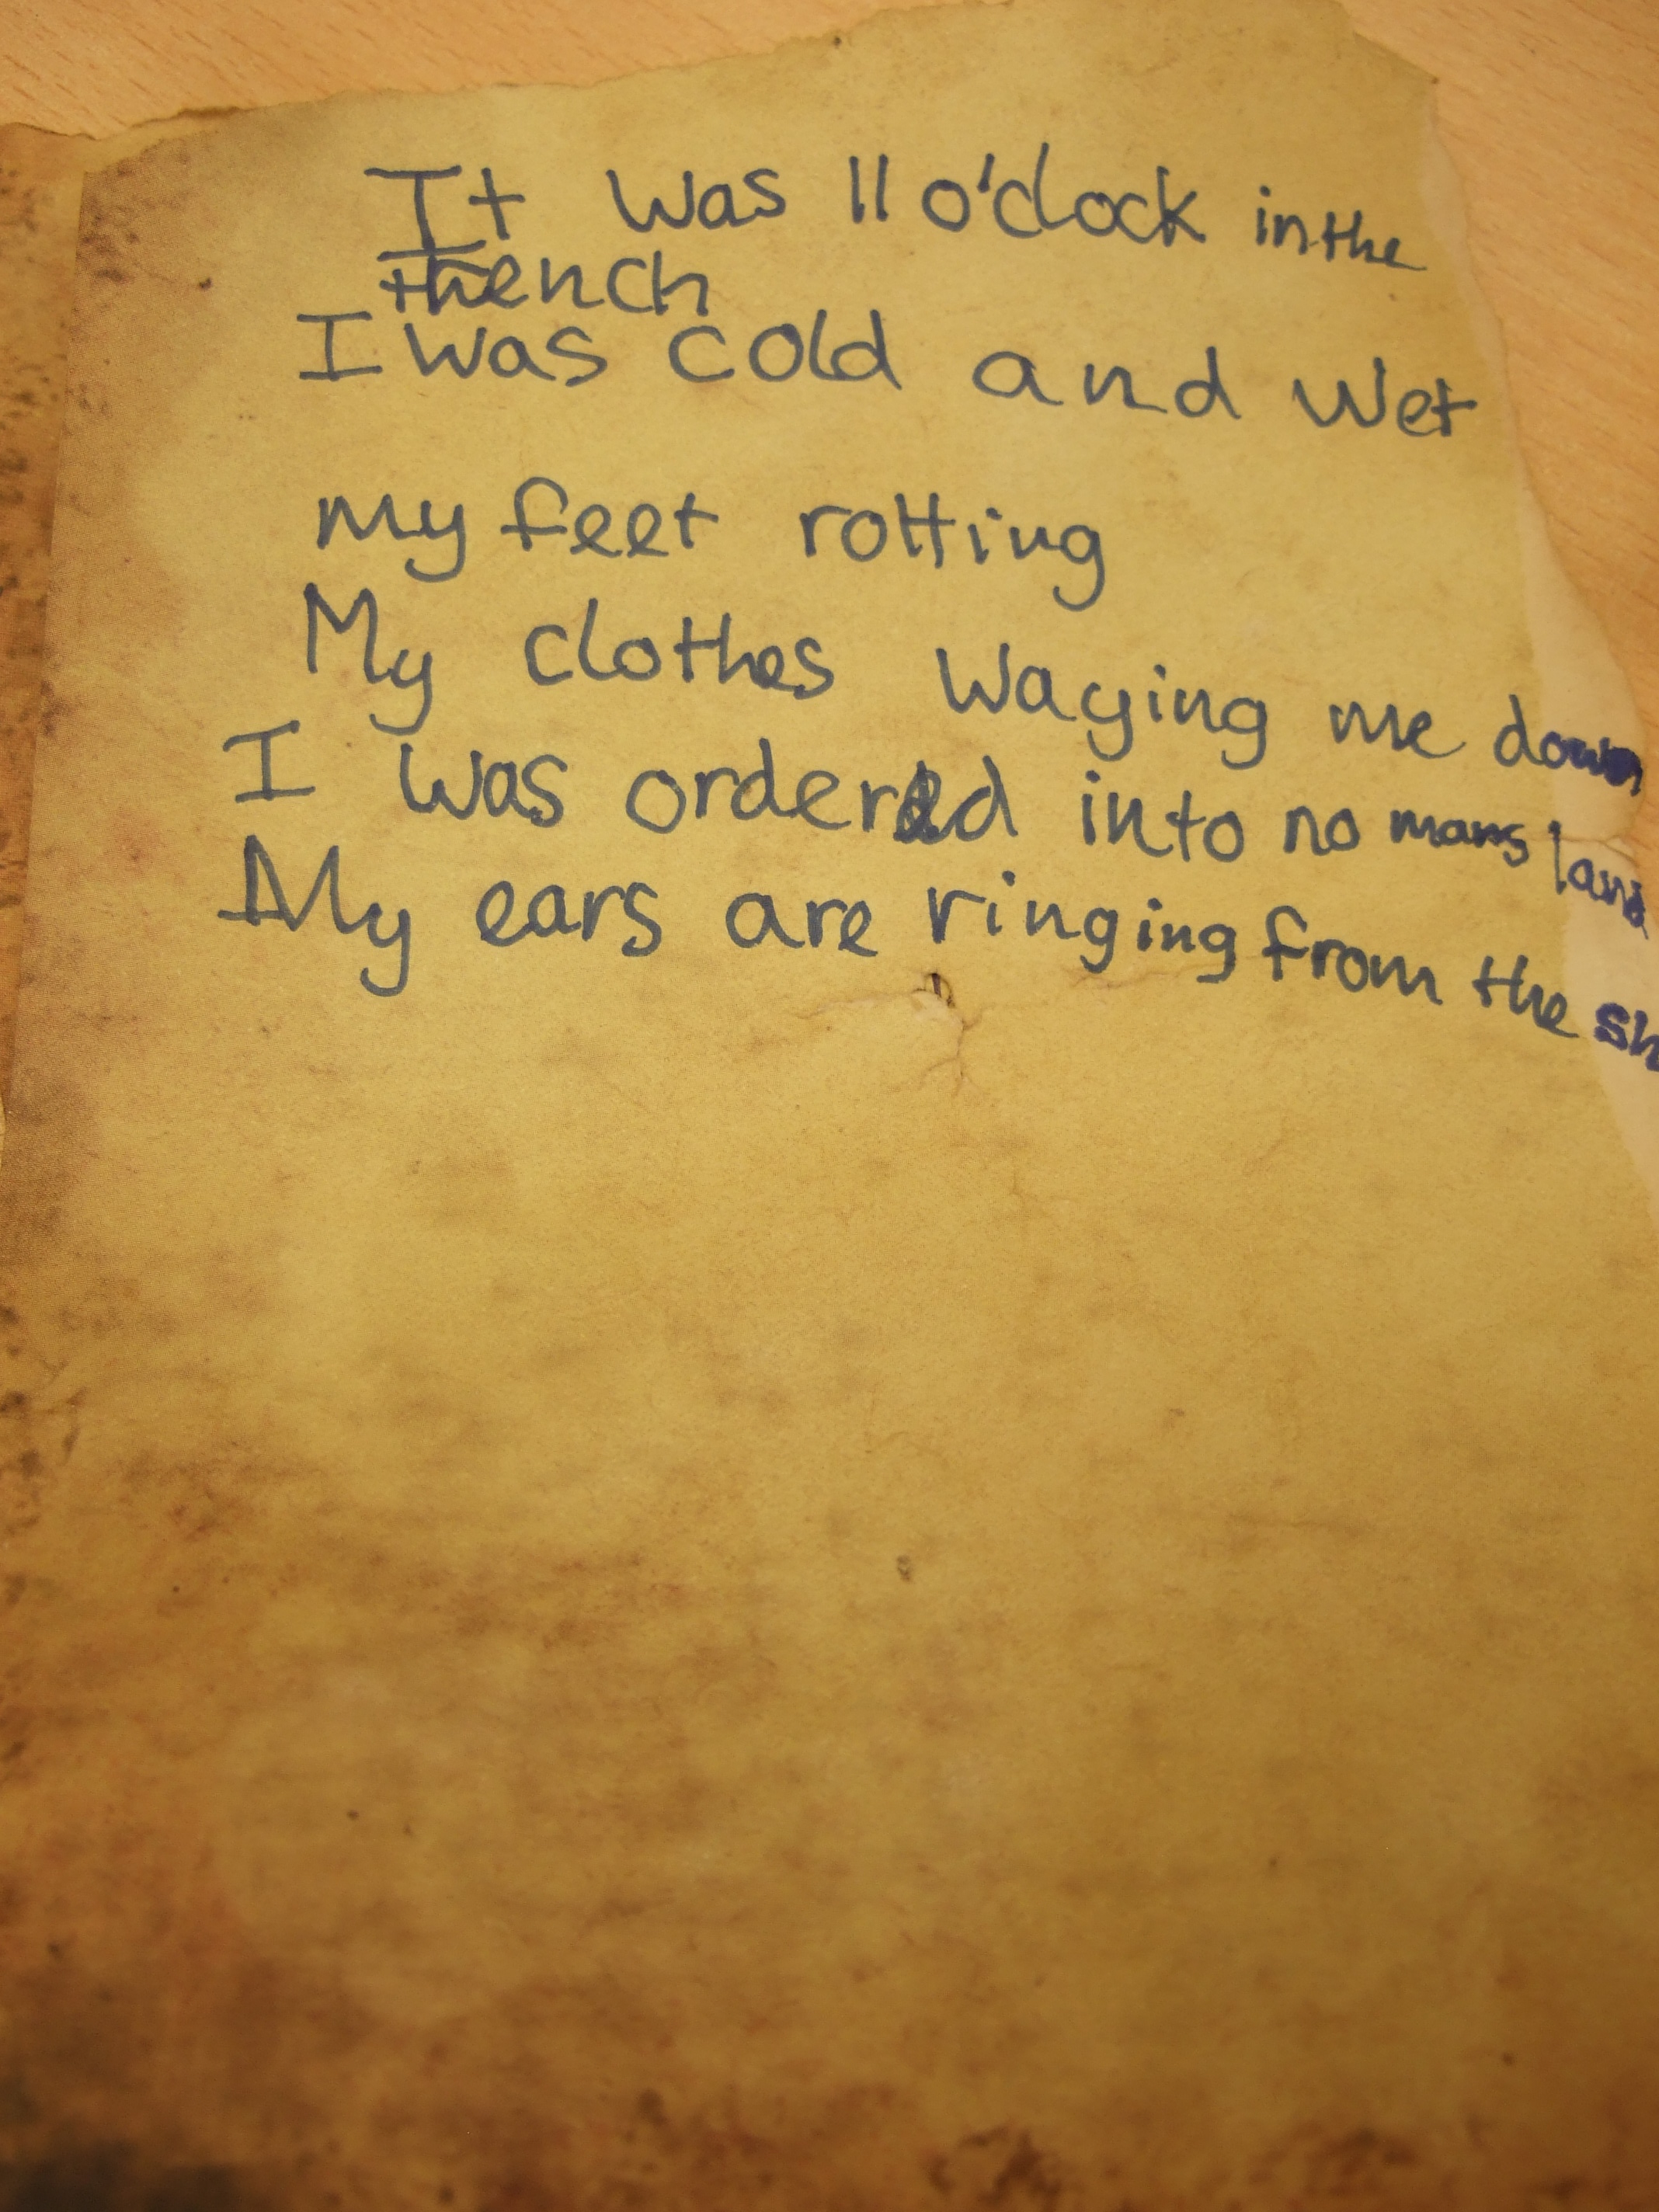 It was 11 o'clock in the
trench
I was cold and wet
my feet rotting
My clothes waying me down
I was ordered into no mans land
My ears are ringing from the